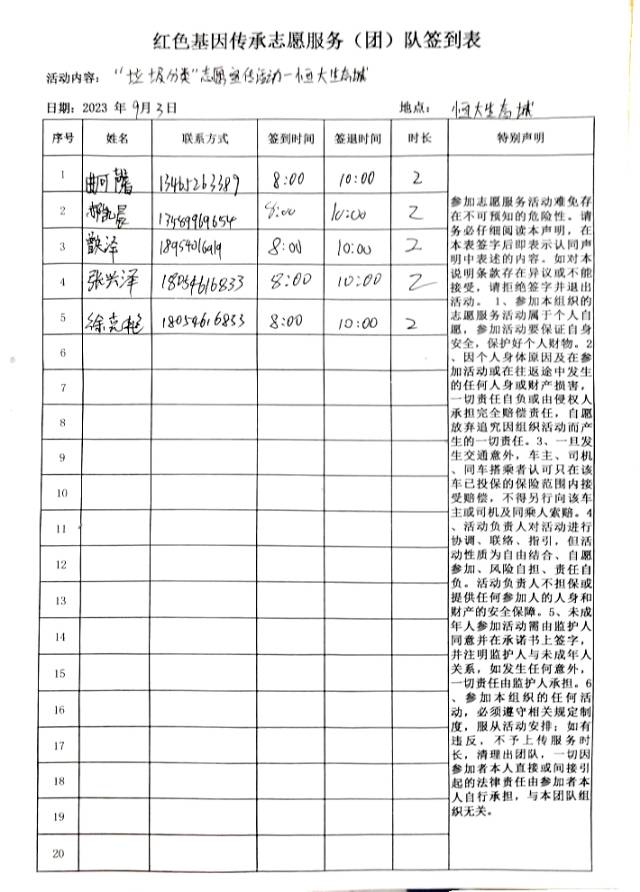 红色基因传承志愿服务（团）队签到表
活动内容：“垃圾分类”志愿宣传活动—恒大生态城
日期：2023 年 9月3日 地点：恒大生态城
序号 姓名 联系方式 签到时间 签退时间 时长 特别声明
1 曲可馨 13465263389 8:00 10:00 2
2 晨 13589969654 8:00 10:00 2
3 泽 18954016919 8:00 10:00 2
4 张兴泽 18054616833 8:00 10:00 2
5 徐克艳 18054616833 8:00 10:00 2
6
7
8
9
10
11
12
13
14
15
16
17
18
19
20
参加志愿服务活动难免存
在不可预知的危险性。请
务必仔细阅读本声明，在
本表签字后即表示认同声
明中表述的内容。如对本
说明条款存在异议或不能
接受，请拒绝签字并退出
活动。 1、参加本组织的
志愿服务活动属于个人自
愿，参加活动要保证自身
安全，保护好个人财物。2
、因个人身体原因及在参
加活动或在往返途中发生
的任何人身或财产损害，
一切责任自负或由侵权人
承担完全赔偿责任，自愿
放弃追究因组织活动而产
生的一切责任。3、一旦发
生交通意外，车主、司机
、同车搭乘者认可只在该
车已投保的保险范围内接
受赔偿，不得另行向该车
主或司机及同乘人索赔。4
、活动负责人对活动进行
协调、联络、指引，但活
动性质为自由结合、自愿
参加、风险自担、责任自
负。活动负责人不担保或
提供任何参加人的人身和
财产的安全保障。5、未成
年人参加活动需由监护人
同意并在承诺书上签字，
并注明监护人与未成年人
关系，如发生任何意外，
一切责任由监护人承担。6
、参加本组织的任何活
动，必须遵守相关规定制
度，服从活动安排；如有
违反，不予上传服务时
长，清理出团队，一切因
参加者本人直接或间接引
起的法律责任由参加者本
人自行承担，与本团队组
织无关。